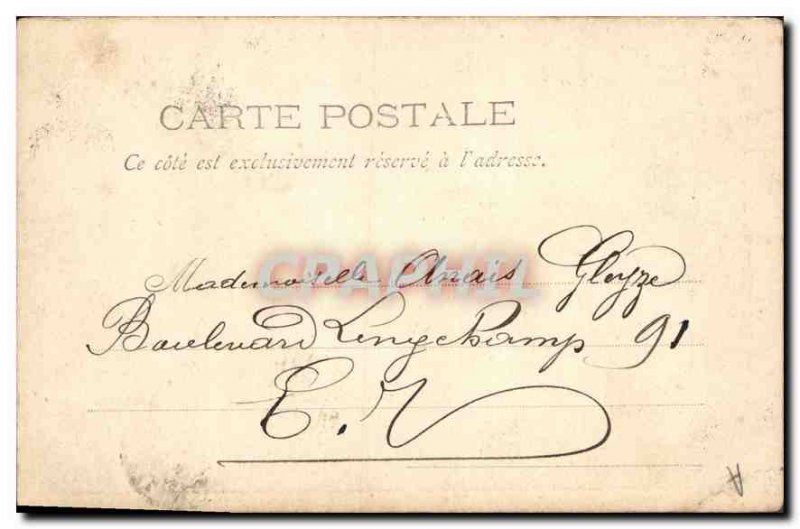 CARTE POSTALE
Ce côté est exclusivement réservé à l'adresse.
CPAPHIL
Mademoiselle Anaïs Gleyze
Boulevard Longchamp 91
E. V.
A